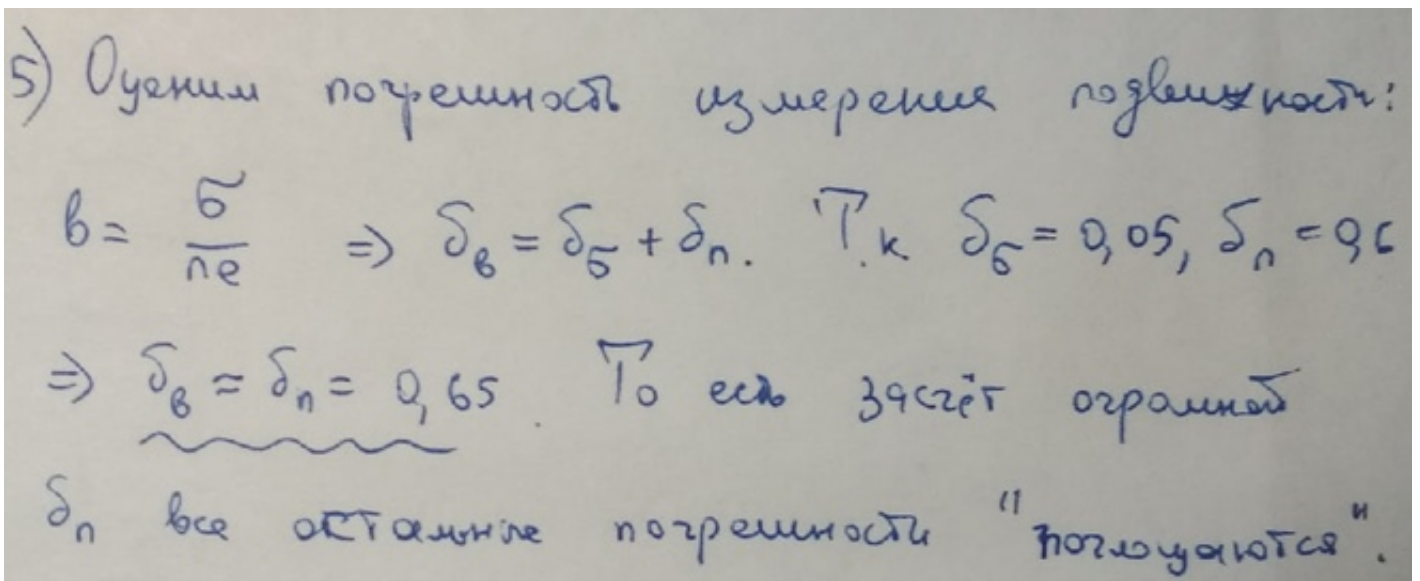 5) Оценим погрешность измерения подвижности:
b = σ/ne => δ_b = δ_σ + δ_n. Т.к δ_σ = 0,05, δ_n = 0,6
=> δ_b ≈ δ_n = 0,65. То есть засчёт огромной
δ_n все остальные погрешности "поглощаются".